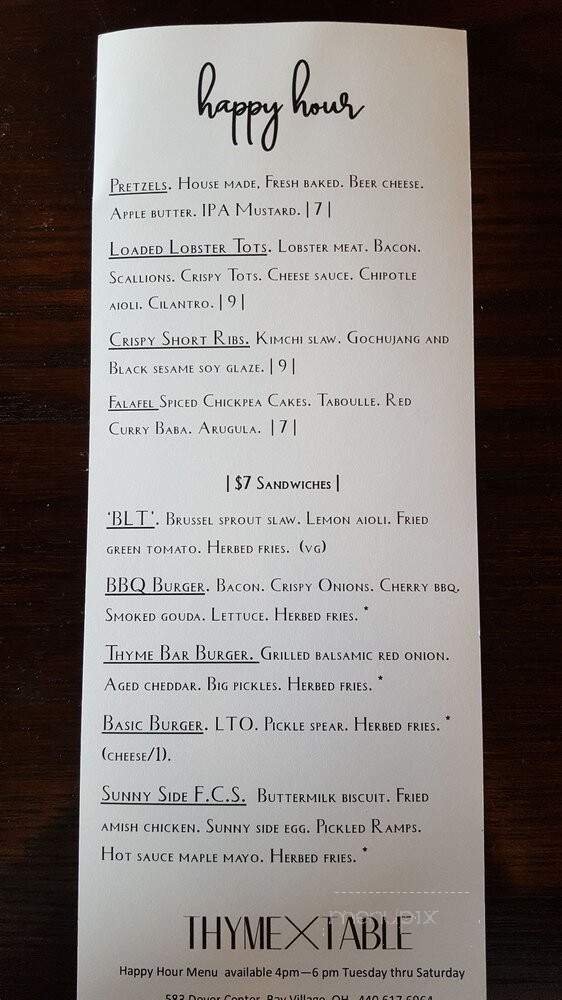 happy hour
Pretzels. House made, Fresh baked. Beer cheese.
Apple butter. IPA Mustard. |7|
Loaded Lobster Tots. Lobster meat. Bacon.
Scallions. Crispy Tots. Cheese sauce. Chipotle
aioli. Cilantro. |9|
Crispy Short Ribs. Kimchi slaw. Gochujang and
Black sesame soy glaze. |9|
Falafel Spiced Chickpea Cakes. Taboulle. Red
Curry Baba. Arugula. |7|
|$7 Sandwiches|
'BLT'. Brussel sprout slaw. Lemon aioli. Fried
green tomato. Herbed fries. (vg)
BBQ Burger. Bacon. Crispy Onions. Cherry bbq.
Smoked gouda. Lettuce. Herbed fries. *
Thyme Bar Burger. Grilled balsamic red onion.
Aged cheddar. Big pickles. Herbed fries. *
Basic Burger. LTO. Pickle spear. Herbed fries. *
(cheese/1).
Sunny Side F.C.S. Buttermilk biscuit. Fried
amish chicken. Sunny side egg. Pickled Ramps.
Hot sauce maple mayo. Herbed fries. *
menupix
THYME X TABLE
Happy Hour Menu available 4pm—6 pm Tuesday thru Saturday
583 Dover Center, Bay Village, OH 440.617.6964